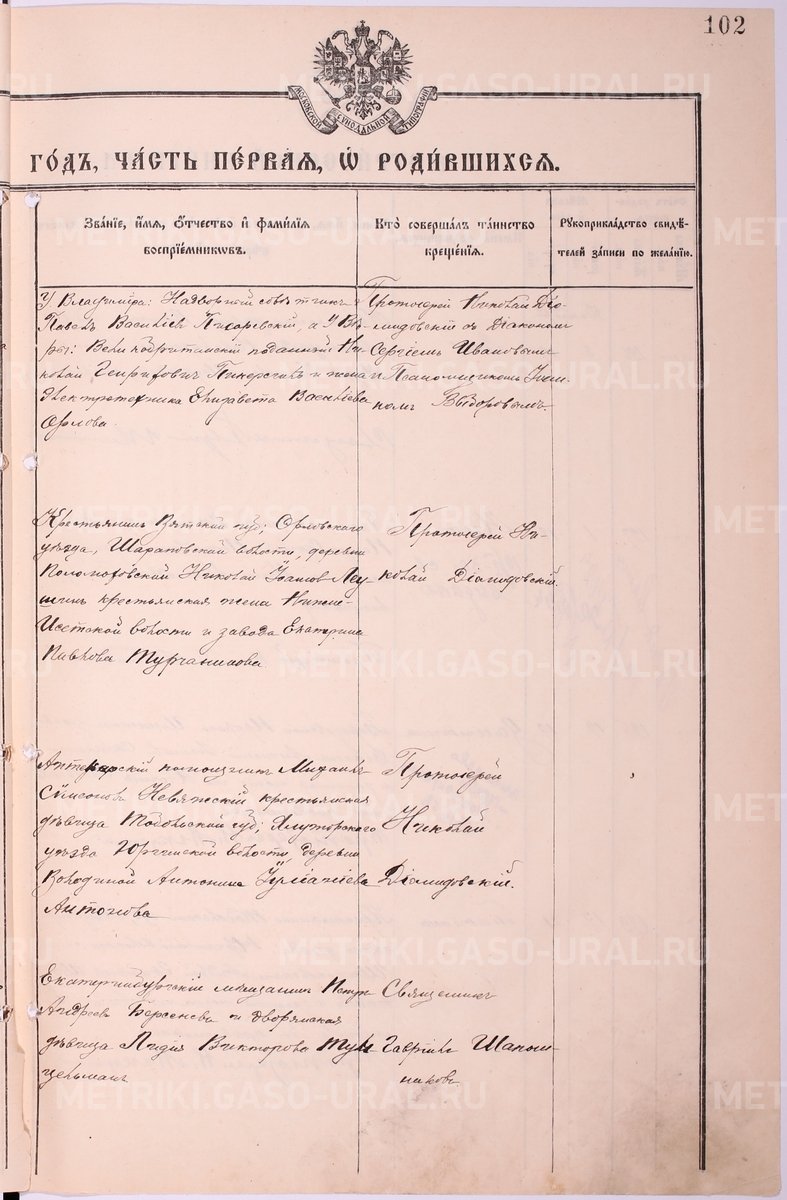 102
МОСКОВСКОЙ СѴНОДАЛЬНОЙ ТИПОГРАФІИ
ГОДЪ, ЧАСТЬ ПЕРВАЯ, Ѡ РОДИВШИХСЯ.
Званіе, имя, отчество и фамилія
воспріемниковъ.
Кто совершалъ таинство
крещенія.
Рукоприкладство свидѣ-
телей записи по желанію.
У Владиміра: Надворный совѣтникъ
Павелъ Васильевъ Писаревскій, а У Вѣ-
ры: Великобританскій подданный Ни-
колай Генриховичъ Пикерсгиль и жена
Электротехника Елизавета Васильева
Орлова.
Протоіерей Николай Діо-
мидовскій съ Діакономъ
Сергіемъ Ивановымъ
и Псаломщикомъ
Выборовымъ
Крестьянинъ Вятской губ; Орловскаго
уѣзда, Шараповской волости, деревни
Николай Іоанновъ
крестьянская жена Нижне-
Исетской волости и завода Екатерина
Павлова Турчанинова
Протоіерей Ни-
колай Діомидовскій.
Аптекарскій помощникъ Михаилъ
Симсоновъ Невяжскій крестьянская
дѣвица Тобольской губ; Ялуторскаго
уѣзда Юргинской волости, деревни
Володиной Антонина Іуліаніева
Антонова
Протоіерей
Николай
Діомидовскій.
Екатеринбургскій мѣщанинъ Петръ
Андреевъ Берсеневъ и дворянская
дѣвица Лидія Викторова Тун-
цельманъ
Священникъ
Гавріилъ Шапош-
никовъ
METRIKI.GASO-URAL.RU